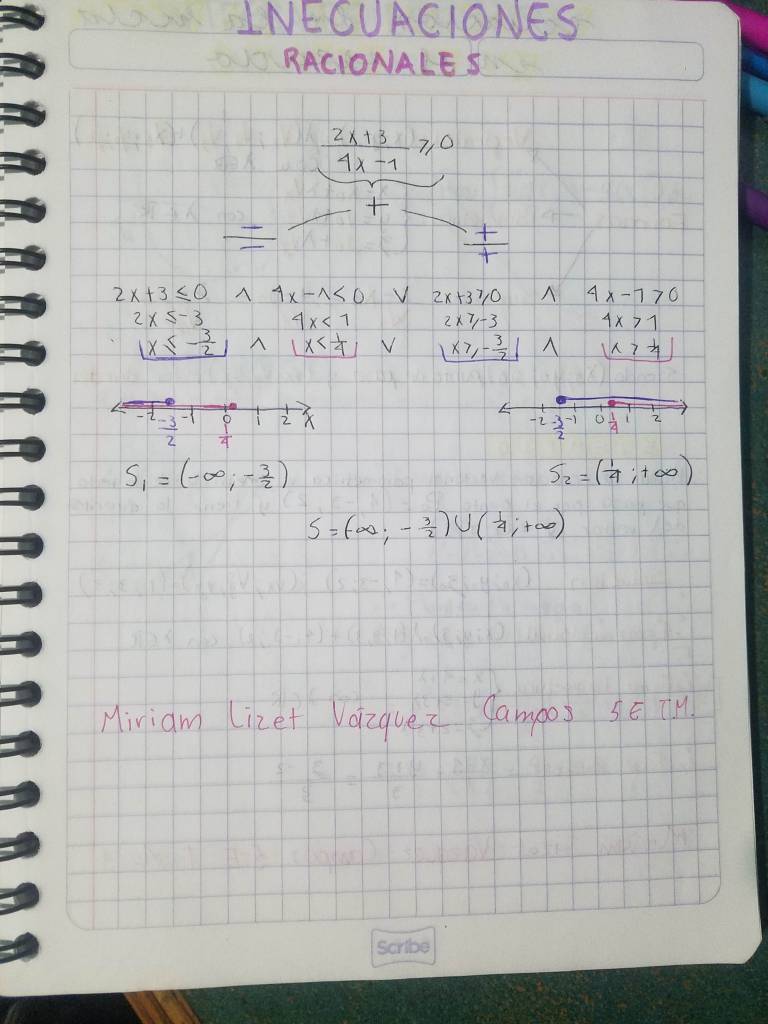 INECUACIONES
RACIONALES
2x+3 ≥ 0
4x-1
+
- +
- +
2x+3 ≤ 0 ∧ 4x-1 < 0 ∨ 2x+3 ≥ 0 ∧ 4x-1 > 0
2x ≤ -3 4x < 1 2x ≥ -3 4x > 1
x ≤ -3/2 ∧ x < 1/4 ∨ x ≥ -3/2 ∧ x > 1/4
-2 -3/2 -1 0 1/4 1 2 x -2 -3/2 -1 0 1/4 1 2
S₁ = (-∞; -3/2) S₂ = (1/4; +∞)
S = (-∞; -3/2) ∪ (1/4; +∞)
Miriam Lizet Vázquez Campos 5E T.M.
Scribe